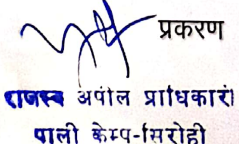 प्रकरण
राजस्व अपील प्राधिकारी
पाली केम्प-सिरोही